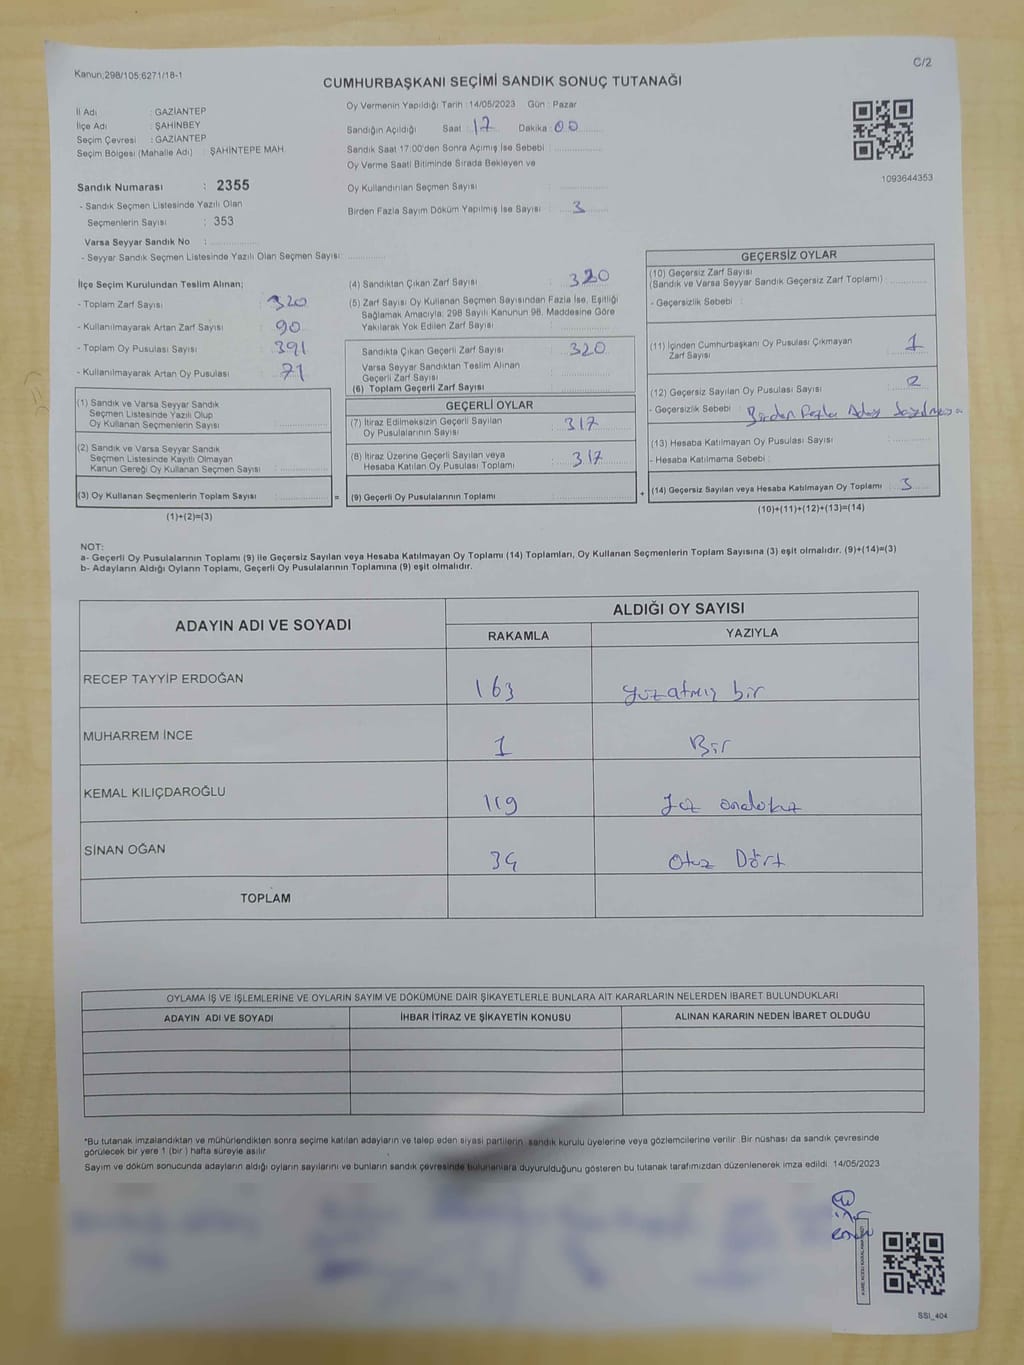 Kanun,298/105;6271/18-1
C/2
CUMHURBAŞKANI SEÇİMİ SANDIK SONUÇ TUTANAĞI
İl Adı : GAZİANTEP
İlçe Adı : ŞAHİNBEY
Seçim Çevresi : GAZİANTEP
Seçim Bölgesi (Mahalle Adı) : ŞAHİNTEPE MAH.
Sandık Numarası : 2355
- Sandık Seçmen Listesinde Yazılı Olan
Seçmenlerin Sayısı : 353
Varsa Seyyar Sandık No :
- Seyyar Sandık Seçmen Listesinde Yazılı Olan Seçmen Sayısı:
Oy Vermenin Yapıldığı Tarih : 14/05/2023 Gün : Pazar
Sandığın Açıldığı Saat : 17 Dakika : 00
Sandık Saat 17:00'den Sonra Açımış İse Sebebi :
Oy Verme Saati Bitiminde Sırada Bekleyen ve
Oy Kullandırılan Seçmen Sayısı :
Birden Fazla Sayım Döküm Yapılmış İse Sayısı : 3
1093644353
İlçe Seçim Kurulundan Teslim Alınan;
- Toplam Zarf Sayısı : 320
- Kullanılmayarak Artan Zarf Sayısı : 90
- Toplam Oy Pusulası Sayısı : 391
- Kullanılmayarak Artan Oy Pusulası : 71
(1) Sandık ve Varsa Seyyar Sandık
Seçmen Listesinde Yazılı Olup
Oy Kullanan Seçmenlerin Sayısı :
(2) Sandık ve Varsa Seyyar Sandık
Seçmen Listesinde Kayıtlı Olmayan
Kanun Gereği Oy Kullanan Seçmen Sayısı :
(3) Oy Kullanan Seçmenlerin Toplam Sayısı :
(1)+(2)=(3)
(4) Sandıktan Çıkan Zarf Sayısı : 320
(5) Zarf Sayısı Oy Kullanan Seçmen Sayısından Fazla İse, Eşitliği
Sağlamak Amacıyla; 298 Sayılı Kanunun 98. Maddesine Göre
Yakılarak Yok Edilen Zarf Sayısı :
Sandıkta Çıkan Geçerli Zarf Sayısı : 320
Varsa Seyyar Sandıktan Teslim Alınan
Geçerli Zarf Sayısı :
(6) Toplam Geçerli Zarf Sayısı :
GEÇERLİ OYLAR
(7) İtiraz Edilmeksizin Geçerli Sayılan
Oy Pusulalarının Sayısı : 317
(8) İtiraz Üzerine Geçerli Sayılan veya
Hesaba Katılan Oy Pusulası Toplamı : 317
= (9) Geçerli Oy Pusulalarının Toplamı : +
GEÇERSİZ OYLAR
(10) Geçersiz Zarf Sayısı
(Sandık ve Varsa Seyyar Sandık Geçersiz Zarf Toplamı)
- Geçersizlik Sebebi :
(11) İçinden Cumhurbaşkanı Oy Pusulası Çıkmayan
Zarf Sayısı : 1
(12) Geçersiz Sayılan Oy Pusulası Sayısı : 2
- Geçersizlik Sebebi : Birden Fazla Aday
(13) Hesaba Katılmayan Oy Pusulası Sayısı :
- Hesaba Katılmama Sebebi :
(14) Geçersiz Sayılan veya Hesaba Katılmayan Oy Toplamı : 3
(10)+(11)+(12)+(13)=(14)
NOT:
a- Geçerli Oy Pusulalarının Toplamı (9) ile Geçersiz Sayılan veya Hesaba Katılmayan Oy Toplamı (14) Toplamları, Oy Kullanan Seçmenlerin Toplam Sayısına (3) eşit olmalıdır. (9)+(14)=(3)
b- Adayların Aldığı Oyların Toplamı, Geçerli Oy Pusulalarının Toplamına (9) eşit olmalıdır.
ADAYIN ADI VE SOYADI
ALDIĞI OY SAYISI
RAKAMLA YAZIYLA
RECEP TAYYİP ERDOĞAN 163 yüzatmış bir
MUHARREM İNCE 1 Bir
KEMAL KILIÇDAROĞLU 119 Yüz ondokuz
SİNAN OĞAN 34 Otuz Dört
TOPLAM
OYLAMA İŞ VE İŞLEMLERİNE VE OYLARIN SAYIM VE DÖKÜMÜNE DAİR ŞİKAYETLERLE BUNLARA AİT KARARLARIN NELERDEN İBARET BULUNDUKLARI
ADAYIN ADI VE SOYADI İHBAR İTİRAZ VE ŞİKAYETİN KONUSU ALINAN KARARIN NEDEN İBARET OLDUĞU
*Bu tutanak imzalandıktan ve mühürlendikten sonra seçime katılan adayların ve talep eden siyasi partilerin sandık kurulu üyelerine veya gözlemcilerine verilir. Bir nüshası da sandık çevresinde
görülecek bir yere 1 (bir) hafta süreyle asılır.
Sayım ve döküm sonucunda adayların aldığı oyların sayılarını ve bunların sandık çevresinde bulunanlara duyurulduğunu gösteren bu tutanak tarafımızdan düzenlenerek imza edildi. 14/05/2023
SSI_404